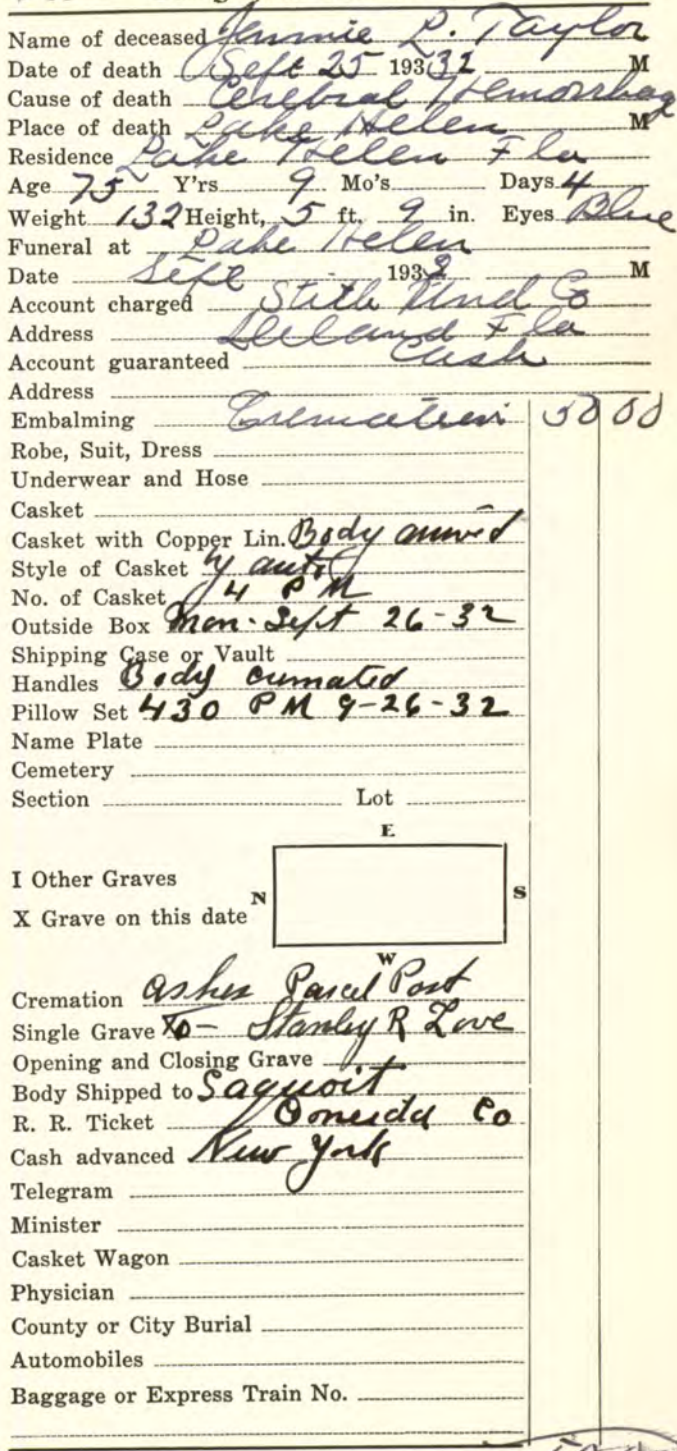 Name of deceased Jennie L. Taylor
Date of death Sept 25 193 32 M
Cause of death Cerebral Hemorrhag
Place of death Lake Helen M
Residence Lake Helen Fla
Age 75 Y'rs 9 Mo's Days 4
Weight 132 Height, 5 ft. 9 in. Eyes Blue
Funeral at Lake Helen
Date Sept 1932 M
Account charged Stith Und Co
Address DeLand Fla
Account guaranteed Cash
Address
Embalming Cremation 50 00
Robe, Suit, Dress
Underwear and Hose
Casket
Casket with Copper Lin. Body arrived
Style of Casket by auto
No. of Casket 4 PM
Outside Box Mon. Sept 26-32
Shipping Case or Vault
Handles Body cremated
Pillow Set 430 PM 9-26-32
Name Plate
Cemetery
Section Lot
E
I Other Graves
N S
X Grave on this date
W
Cremation Ashes Parcel Post
Single Grave To - Stanley R Love
Opening and Closing Grave
Body Shipped to Saquoit
R. R. Ticket Oneida Co
Cash advanced New York
Telegram
Minister
Casket Wagon
Physician
County or City Burial
Automobiles
Baggage or Express Train No.